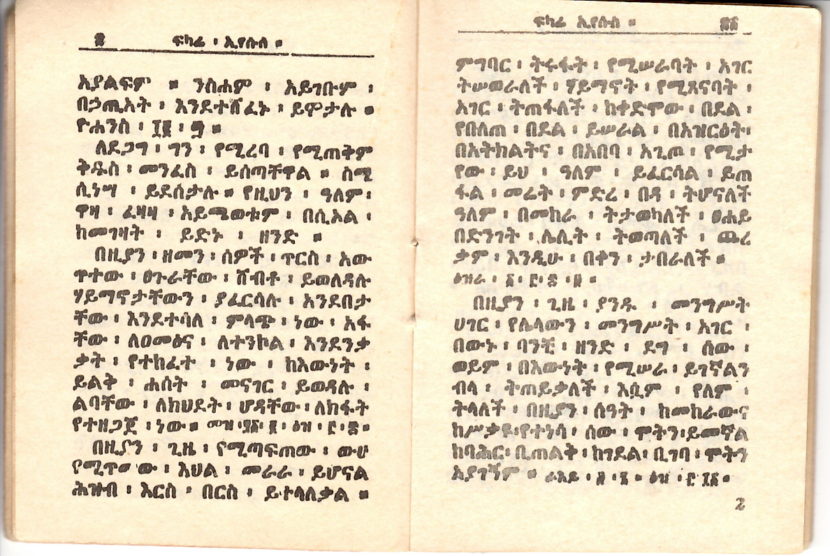 ፍካሬ ፡ ኢየሱስ ።
አያልፍም ። ንስሐም ፡ አይገቡም ፡
በኃጢአት ፡ እንደተሸፈኑ ፡ ይሞታሉ ።
ዮሐንስ ፡ ፲፪ ፡ ፵ ።
ለደጋግ ፡ ግን ፡ የሚረባ ፡ የሚጠቅም
ቅዱስ ፡ መንፈስ ፡ ይሰጣቸዋል ። ስሜ
ሲነሣ ፡ ይደሰታሉ ። የዚህን ፡ ዓለም ፡
ዋዛ ፡ ፈዛዛ ፡ አይጫወቱም ፡ በሲኦል ፡
ከመገዛት ፡ ይድኑ ፡ ዘንድ ።
በዚያን ፡ ዘመን ፡ ሰዎች ፡ ጥርስ ፡ አው
ጥተው ፡ ፀጉራቸው ፡ ሸብቶ ፡ ይወለዳሉ
ሃይማኖታቸውን ፡ ያፈርሳሉ ፡ አንደበታ
ቸው ፡ እንደተባለ ፡ ምላጭ ፡ ነው ፡ አፋ
ቸው ፡ ለዐመፅና ፡ ለተንኮል ፡ እንደንቃ
ቃት ፡ የተከፈተ ፡ ነው ፡ ከእውነት ፡
ይልቅ ፡ ሐሰት ፡ መናገር ፡ ይወዳሉ ፡
ልባቸው ፡ ለክህደት ፡ ሆዳቸው ፡ ለክፋት
የተዘጋጀ ፡ ነው ።
በዚያን ፡ ጊዜ ፡ የሚጣፍጠው ፡ ውሀ
የሚጥመው ፡ እህል ፡ መራራ ፡ ይሆናል
ሕዝብ ፡ እርስ ፡ በርስ ፡ ይተላለቃል ።
ፍካሬ ኢየሱስ ።
ምግባር ፡ ትሩፋት ፡ የሚሠራባት ፡ አገር
ትሠወራለች ፡ ሃይማኖት ፡ የሚጸናባት ፡
አገር ፡ ትጠፋለች ፡ ከቀድሞው ፡ በደል ፡
የበለጠ ፡ በደል ፡ ይሠራል ፡ በአዝርዕት ፡
በአትክልትና ፡ በአበባ ፡ አጊጦ ፡ የሚታ
የው ፡ ይህ ፡ ዓለም ፡ ይፈርሳል ፡ ይጠ
ፋል ፡ መሬት ፡ ምድረ ፡ በዳ ፡ ትሆናለች
ዓለም ፡ በመከራ ፡ ትታወካለች ፡ ፀሐይ
በድንገት ፡ ሌሊት ፡ ትወጣለች ፡ ጨረ
ቃም ፡ እንዲሁ ፡ በቀን ፡ ታበራለች ።
ዕዝራ ፡
በዚያን ፡ ጊዜ ፡ ያንዱ ፡ መንግሥት
ሀገር ፡ የሌላውን ፡ መንግሥት ፡ አገር ፡
በውኑ ፡ ባንቺ ፡ ዘንድ ፡ ደግ ፡ ሰው ፡
ወይም ፡ በእውነት ፡ የሚሠራ ፡ ይገኛልን
ብላ ፡ ትጠይቃለች ፡ እሷም ፡ የለም ፡
ትላለች ፡ በዚያን ፡ ሰዓት ፡ ከመከራውና
ከሥቃዩ ፡ የተነሳ ፡ ሰው ፡ ሞትን ፡ ይመኛል
ከባሕር ፡ ቢጠልቅ ፡ ከገደል ፡ ቢገባ ፡ ሞትን
አያገኝም ። ራእይ ፡